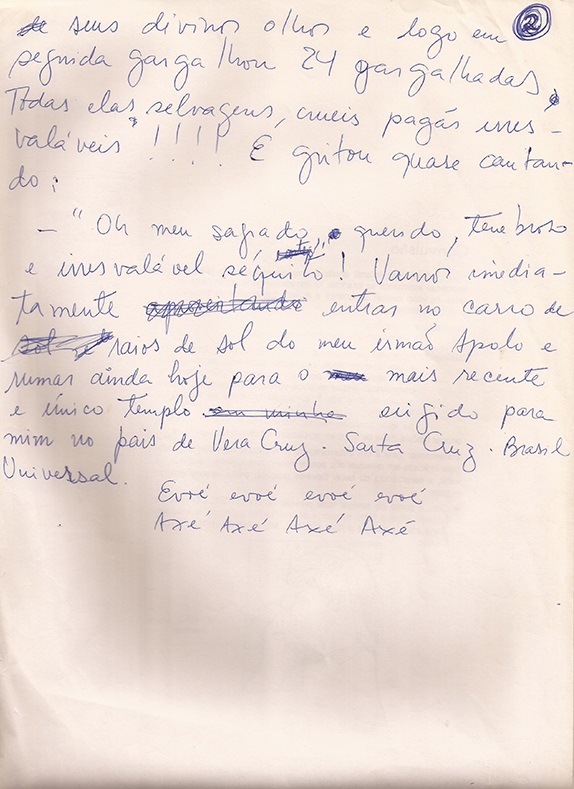 de seus divinos olhos e logo em 2
seguida gargalhou 24 gargalhadas,
Todas elas selvagens, crueis pagás irres-
valáveis !!!! E gritou quase cantan-
do:
— "Oh meu sagrado, querido, tenebroso
e irresvalável séquito! Vamos imedia-
tamente apoveitando entrar no carro de
sol e raios de sol do meu irmão Apolo e
rumar ainda hoje para o mais recente
e único templo em minha erigido para
mim no pais de Vera Cruz. Santa Cruz. Brasil
Universal.
Evoé evoé evoé evoé
Axé Axé Axé Axé